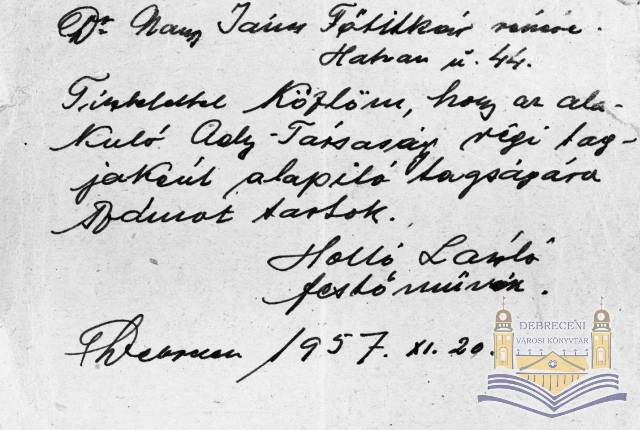 Dr. Nagy János Főtitkár részére.
Hatvan u. 44.
Tisztelettel közlöm, hogy az ala-
kuló Ady-Társaság régi tag-
jaként alapító tagságára
számot tartok.
Holló László
festőművész.
Debrecen 1957. XI. 20.
DEBRECENI
VÁROSI KÖNYVTÁR